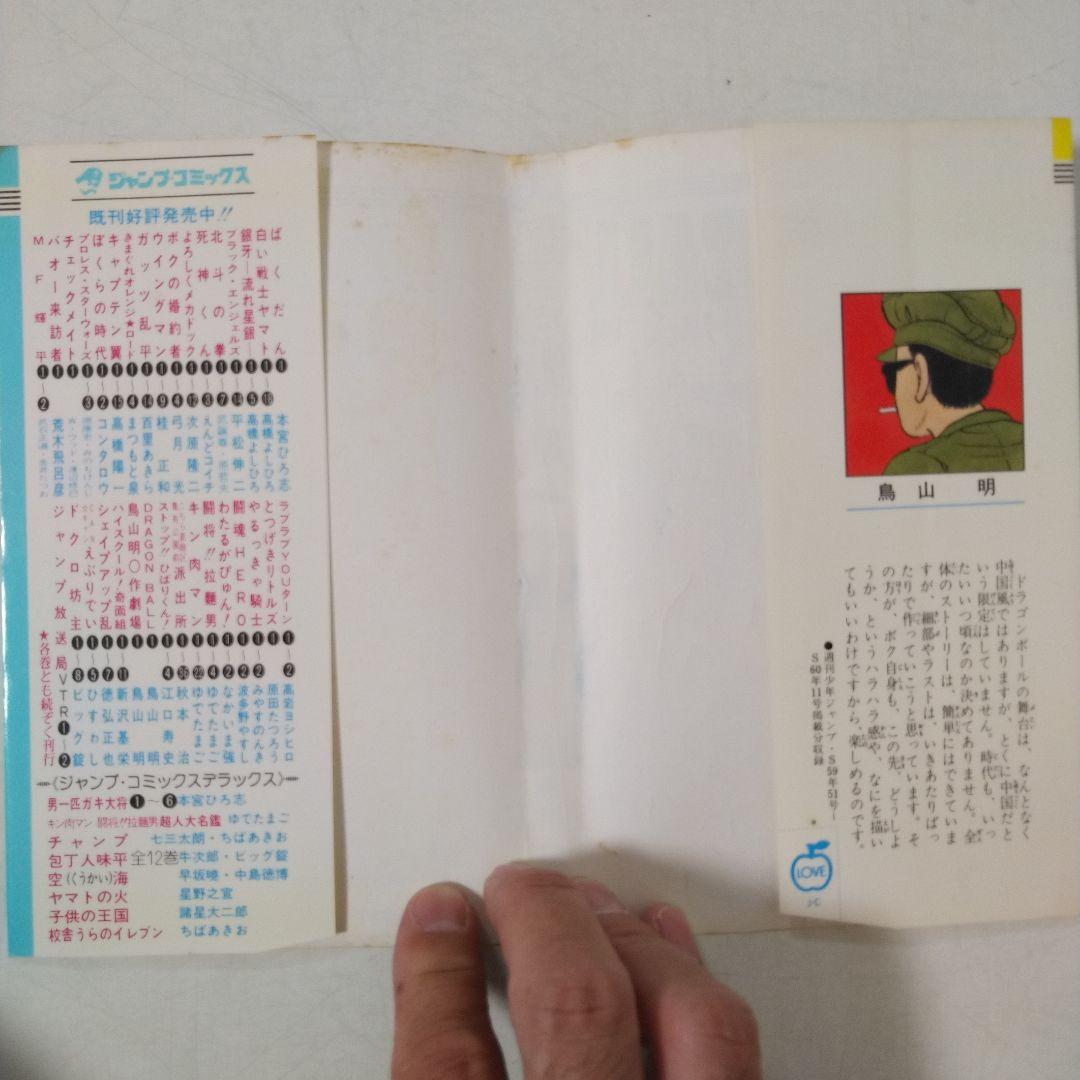 ジャンプ・コミックス
既刊好評発売中!!
ばくだん❶ 本宮ひろ志
白い戦士ヤマト❶〜❿ 高橋よしひろ
銀牙―流れ星 銀―❶〜❺ 高橋よしひろ
ブラック・エンジェルズ❶〜⓮ 平松伸二
北斗の拳❶〜❼ 武論尊・原哲夫
死神くん❶〜❸ えんどコイチ
よろしくメカドック❶〜⓬ 次原隆二
ボクの婚約者❶〜❹ 弓月光
ウイングマン❶〜❾ 桂正和
ガッツ乱平❶〜⓮ 百里あきら
きまぐれオレンジ★ロード❶〜❹ まつもと泉
キャプテン翼❶〜⓯ 高橋陽一
ぼくらの時代❶〜❷ コンタロウ
プロレス・スターウォーズ❶〜❸
チェックメイト❶
バオー来訪者❶ 荒木飛呂彦
MF輝平❶〜❷
ラブラブYOUターン❶〜❷ 高岩ヨシヒロ
とつげきリトルズ❶ 原田たつろう
やるっきゃ騎士❶〜❷ みやすのんき
闘魂HERO❶〜❷ 波多野やすし
わたるがぴゅん!❶〜❷ なかいま強
闘将!!拉麵男❶〜❹ ゆでたまご
キン肉マン❶〜㉒ ゆでたまご
こちら葛飾区亀有公園前派出所❶〜㊱ 秋本治
ストップ!!ひばりくん!❶〜❹ 江口寿史
DRAGON BALL❶ 鳥山明
鳥山明○作劇場❶ 鳥山明
ハイスクール!奇面組❶〜⓫ 新沢基栄
シェイプアップ乱❶〜❼ 徳弘正也
えぶりでい❶〜❺ ひすわし
ドクロ坊主❶〜❽ ビッグ錠
ジャンプ放送局VTR❶〜❷
★各巻とも続ぞく刊行
《ジャンプ・コミックスデラックス》
男一匹ガキ大将❶〜❻本宮ひろ志
キン肉マン 闘将!!拉麵男 超人大名鑑 ゆでたまご
チャンプ 七三太朗・ちばあきお
包丁人味平 全12巻 牛次郎・ビッグ錠
空(くうかい)海 早坂暁・中島徳博
ヤマトの火 星野之宣
子供の王国 諸星大二郎
校舎うらのイレブン ちばあきお
鳥山 明
ドラゴンボールの舞台は、なんとなく
中国風ではありますが、とくに中国だと
いう限定はしていません。時代も、いっ
たいいつ頃なのか決めてありません。全
体のストーリーは、簡単にはできていま
すが、細部やラストは、いきあたりばっ
たりで作っていこうと思っています。そ
の方が、ボク自身も、この先、どうしよ
うか、というハラハラ感や、なにを描い
てもいいわけですから、楽しめるのです。
●週刊少年ジャンプ・S59年51号〜
S60年11号掲載分収録
LOVE
J・C